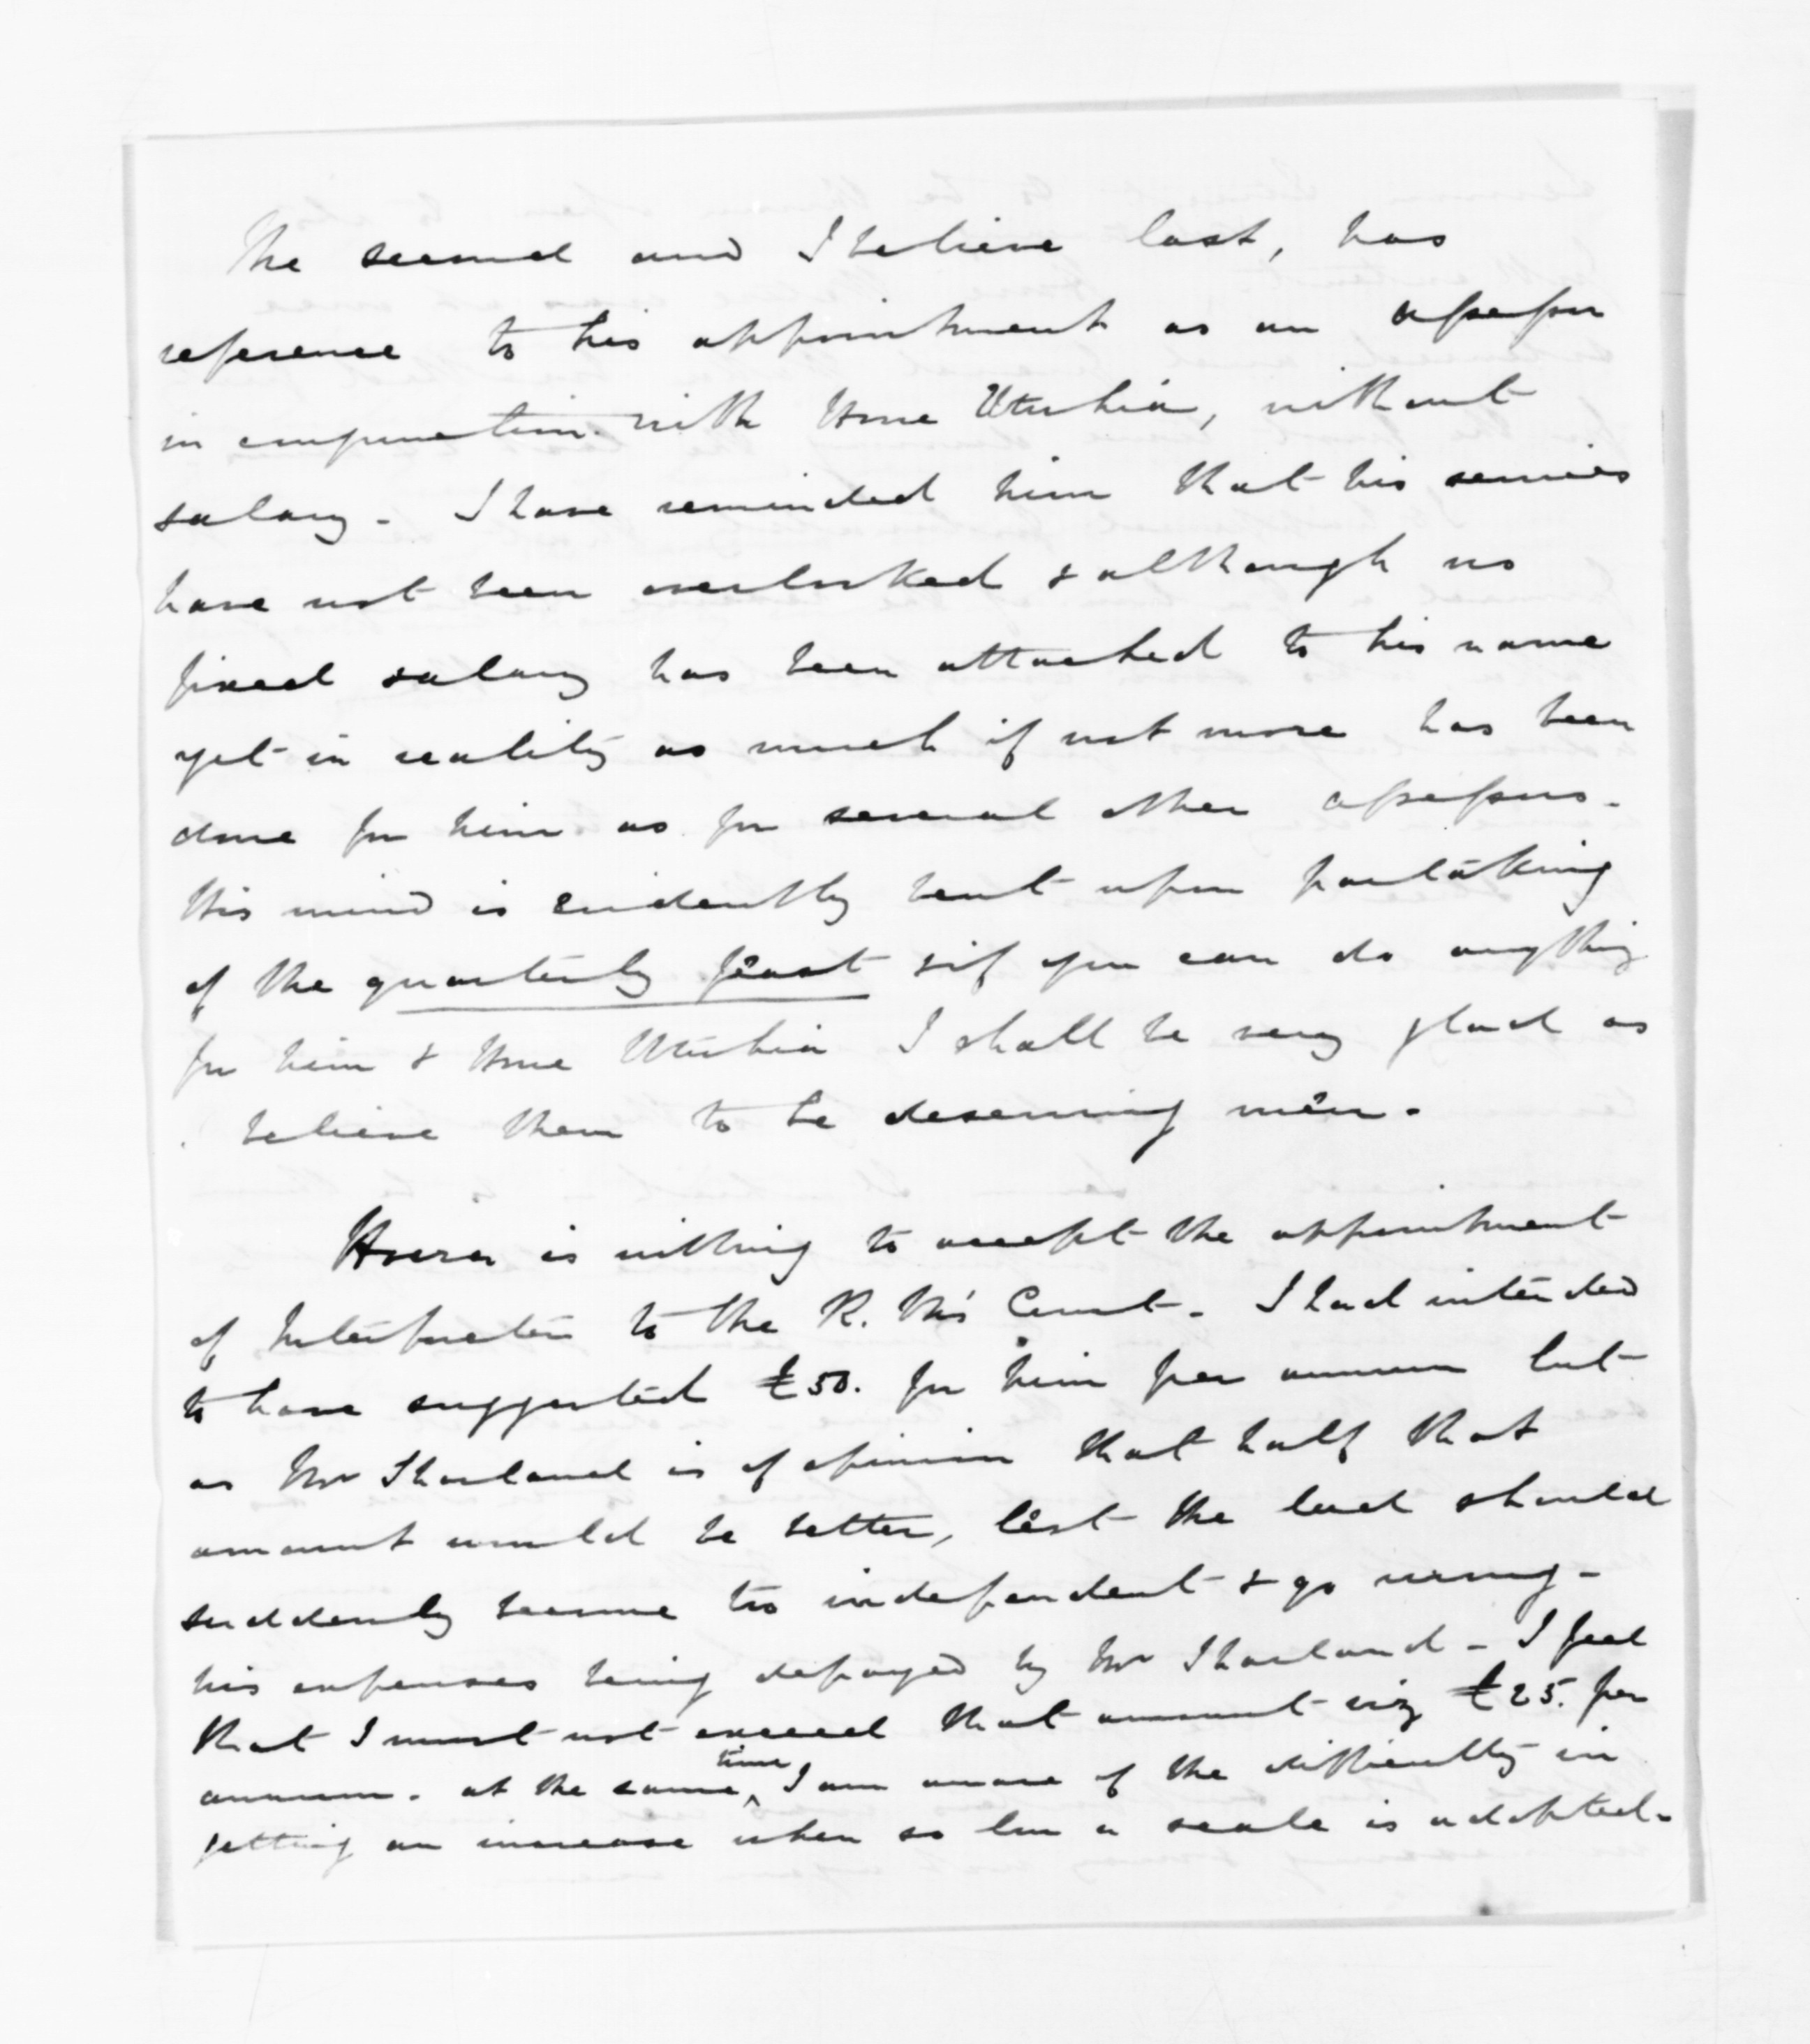 The second and I believe last, has
reference to his appointment as an assessor
in conjunction with Hone Utuhia, without
salary. I have reminded him that his services
have not been overlooked & although no
fixed salary has been attached to his name
yet in reality as much if not more has been
done for him as for several other assessors.
His mind is evidently bent upon partaking
of the quarterly feast & if you can do anything
for him & Hone Utuhia I shall be very glad as
believe them to be deserving men.
is willing to accept the appointment
of Interpreter to the R. M's Court. I had intended
to have suggested £50. for him per annum but
as Mr Sharland is of opinion that half that
amount would be better, lest the lad should
suddenly become too independent & go wrong -
his expenses being defrayed by Mr Sharland - I feel
that I must not exceed that amount viz £25. per
annum. at the same time I am aware of the difficulty in
getting an increase when so low a scale is adopted.